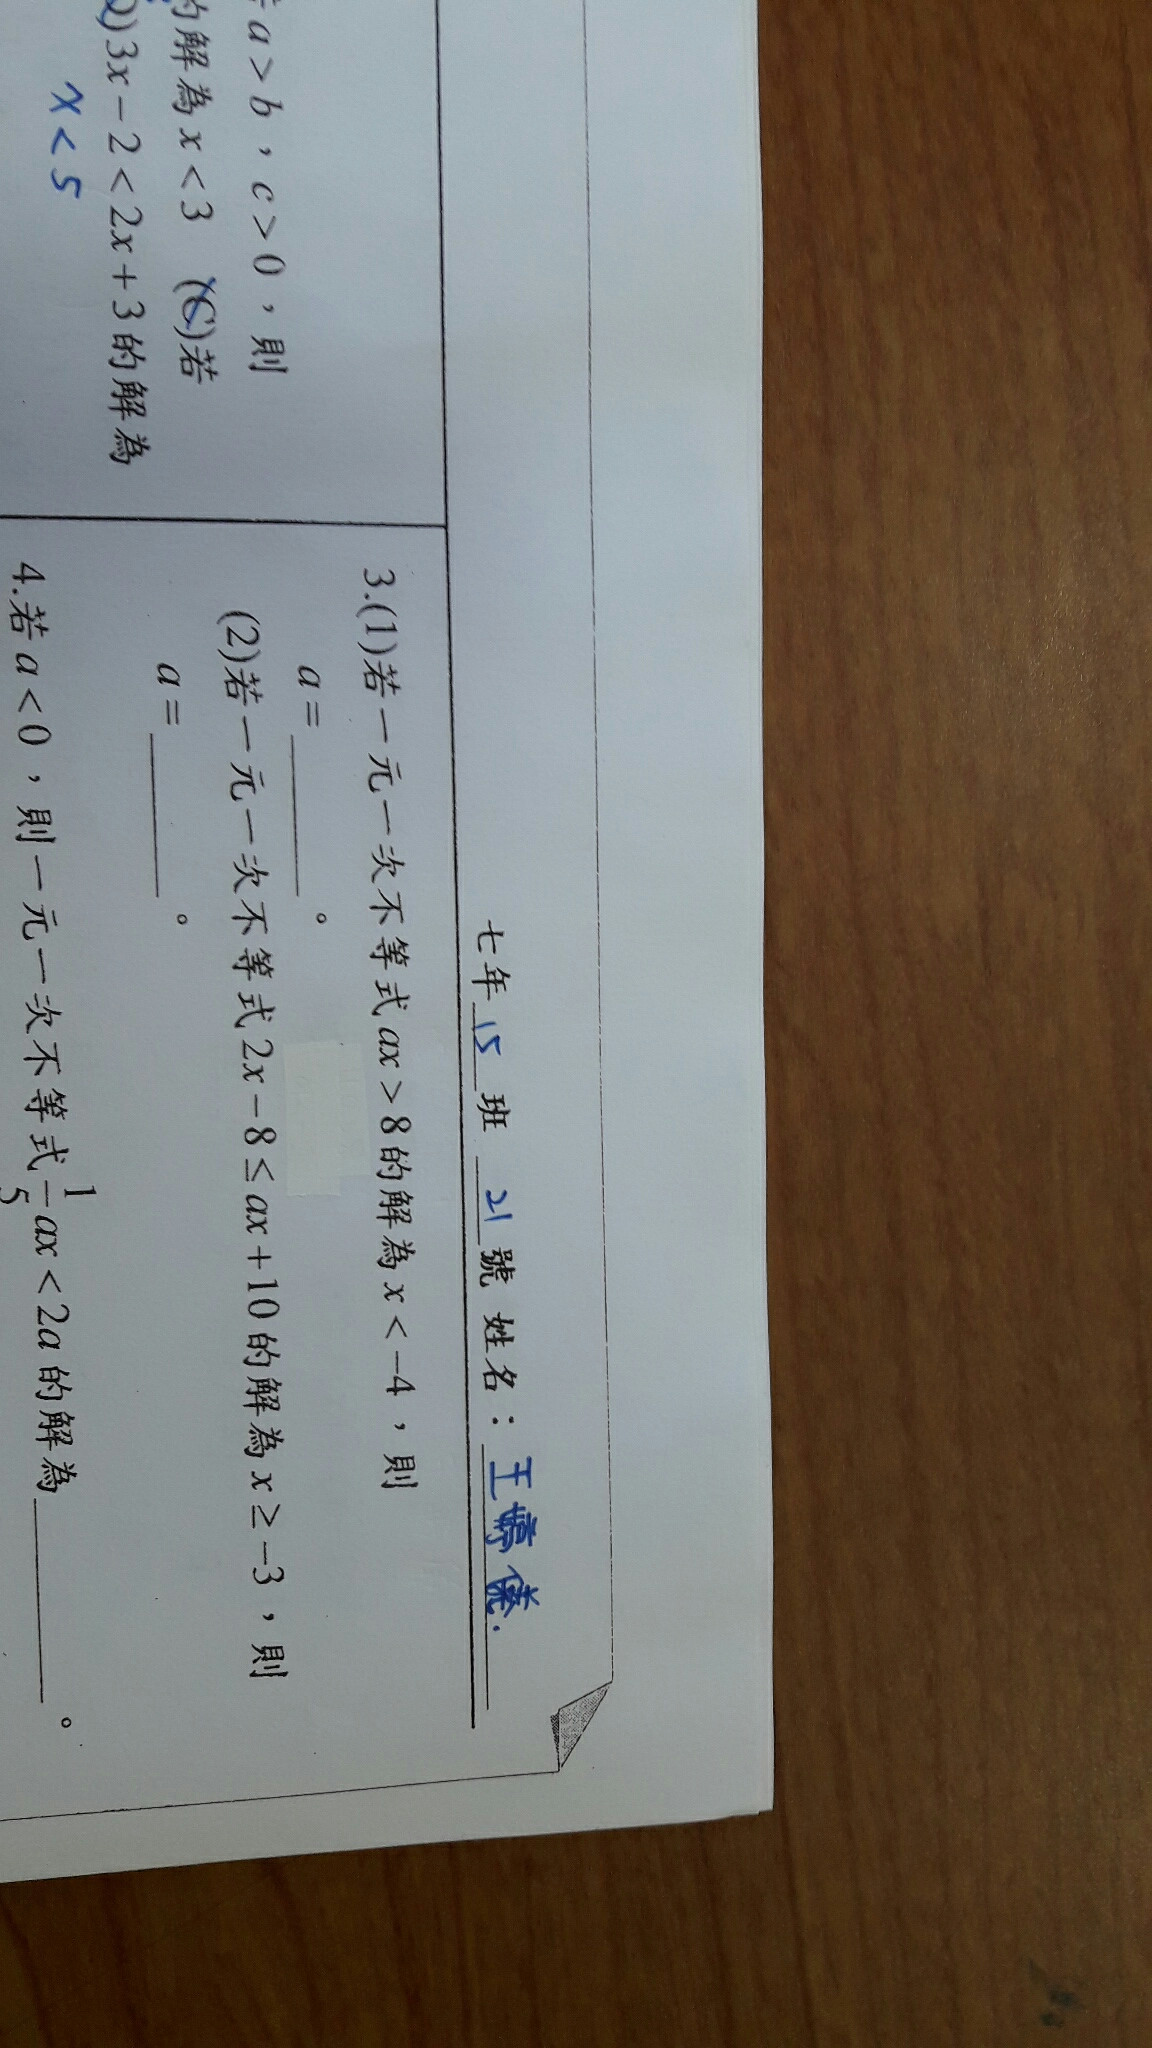 七年15班 21號 姓名：王婷儀.
a>b，c>0，則
的解為x<3 (C)若
)3x-2<2x+3的解為
x<5
3.(1)若一元一次不等式ax>8的解為x<-4，則
a=______。
(2)若一元一次不等式2x-8≤ax+10的解為x≥-3，則
a=______。
4.若a<0，則一元一次不等式1/5ax<2a的解為______。